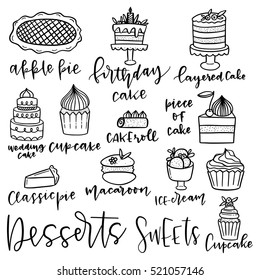 apple pie
birthday
cake
layered cake
wedding
cake
cupcake
CAKEroll
piece
of
cake
Classic pie
macaroon
ICE-cream
Cupcake
Desserts SWEETS
shutterstock
IMAGE ID: 521057146
www.shutterstock.com